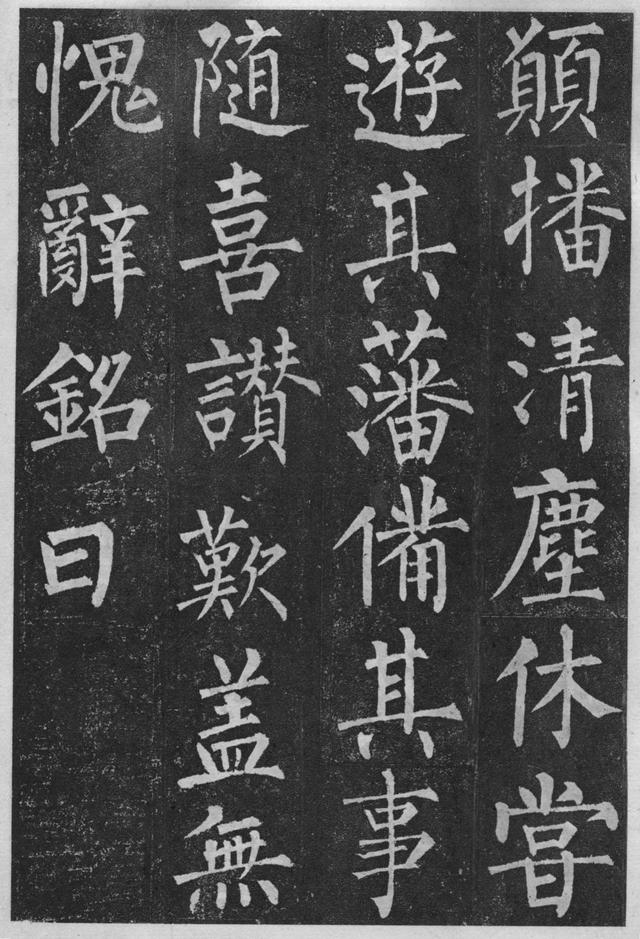 顛播清塵休甞
遊其藩備其事
隨喜讃歎盖無
愧辭銘曰